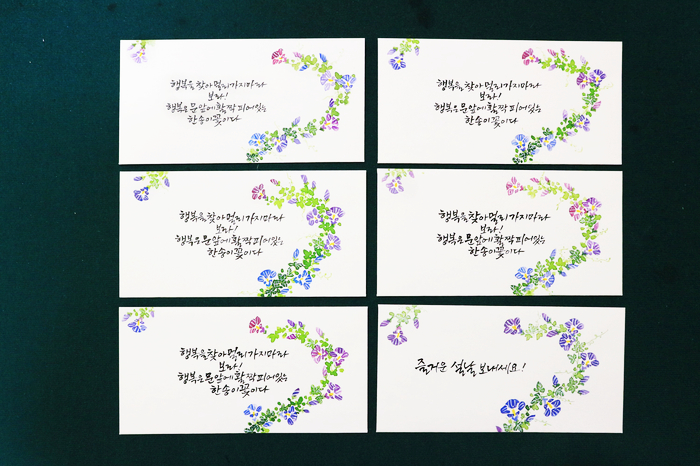 행복을 찾아 멀리 가지 마라
보라!
행복은 문앞에 활짝 피어있는
한송이 꽃이다
행복을 찾아 멀리 가지 마라
보라!
행복은 문앞에 활짝 피어있는
한송이 꽃이다
행복을 찾아 멀리 가지 마라
보라!
행복은 문앞에 활짝 피어있는
한송이 꽃이다
행복을 찾아 멀리 가지 마라
보라!
행복은 문앞에 활짝 피어있는
한송이 꽃이다
행복을 찾아 멀리 가지 마라
보라!
행복은 문앞에 활짝 피어있는
한송이 꽃이다
즐거운 설날 보내세요!